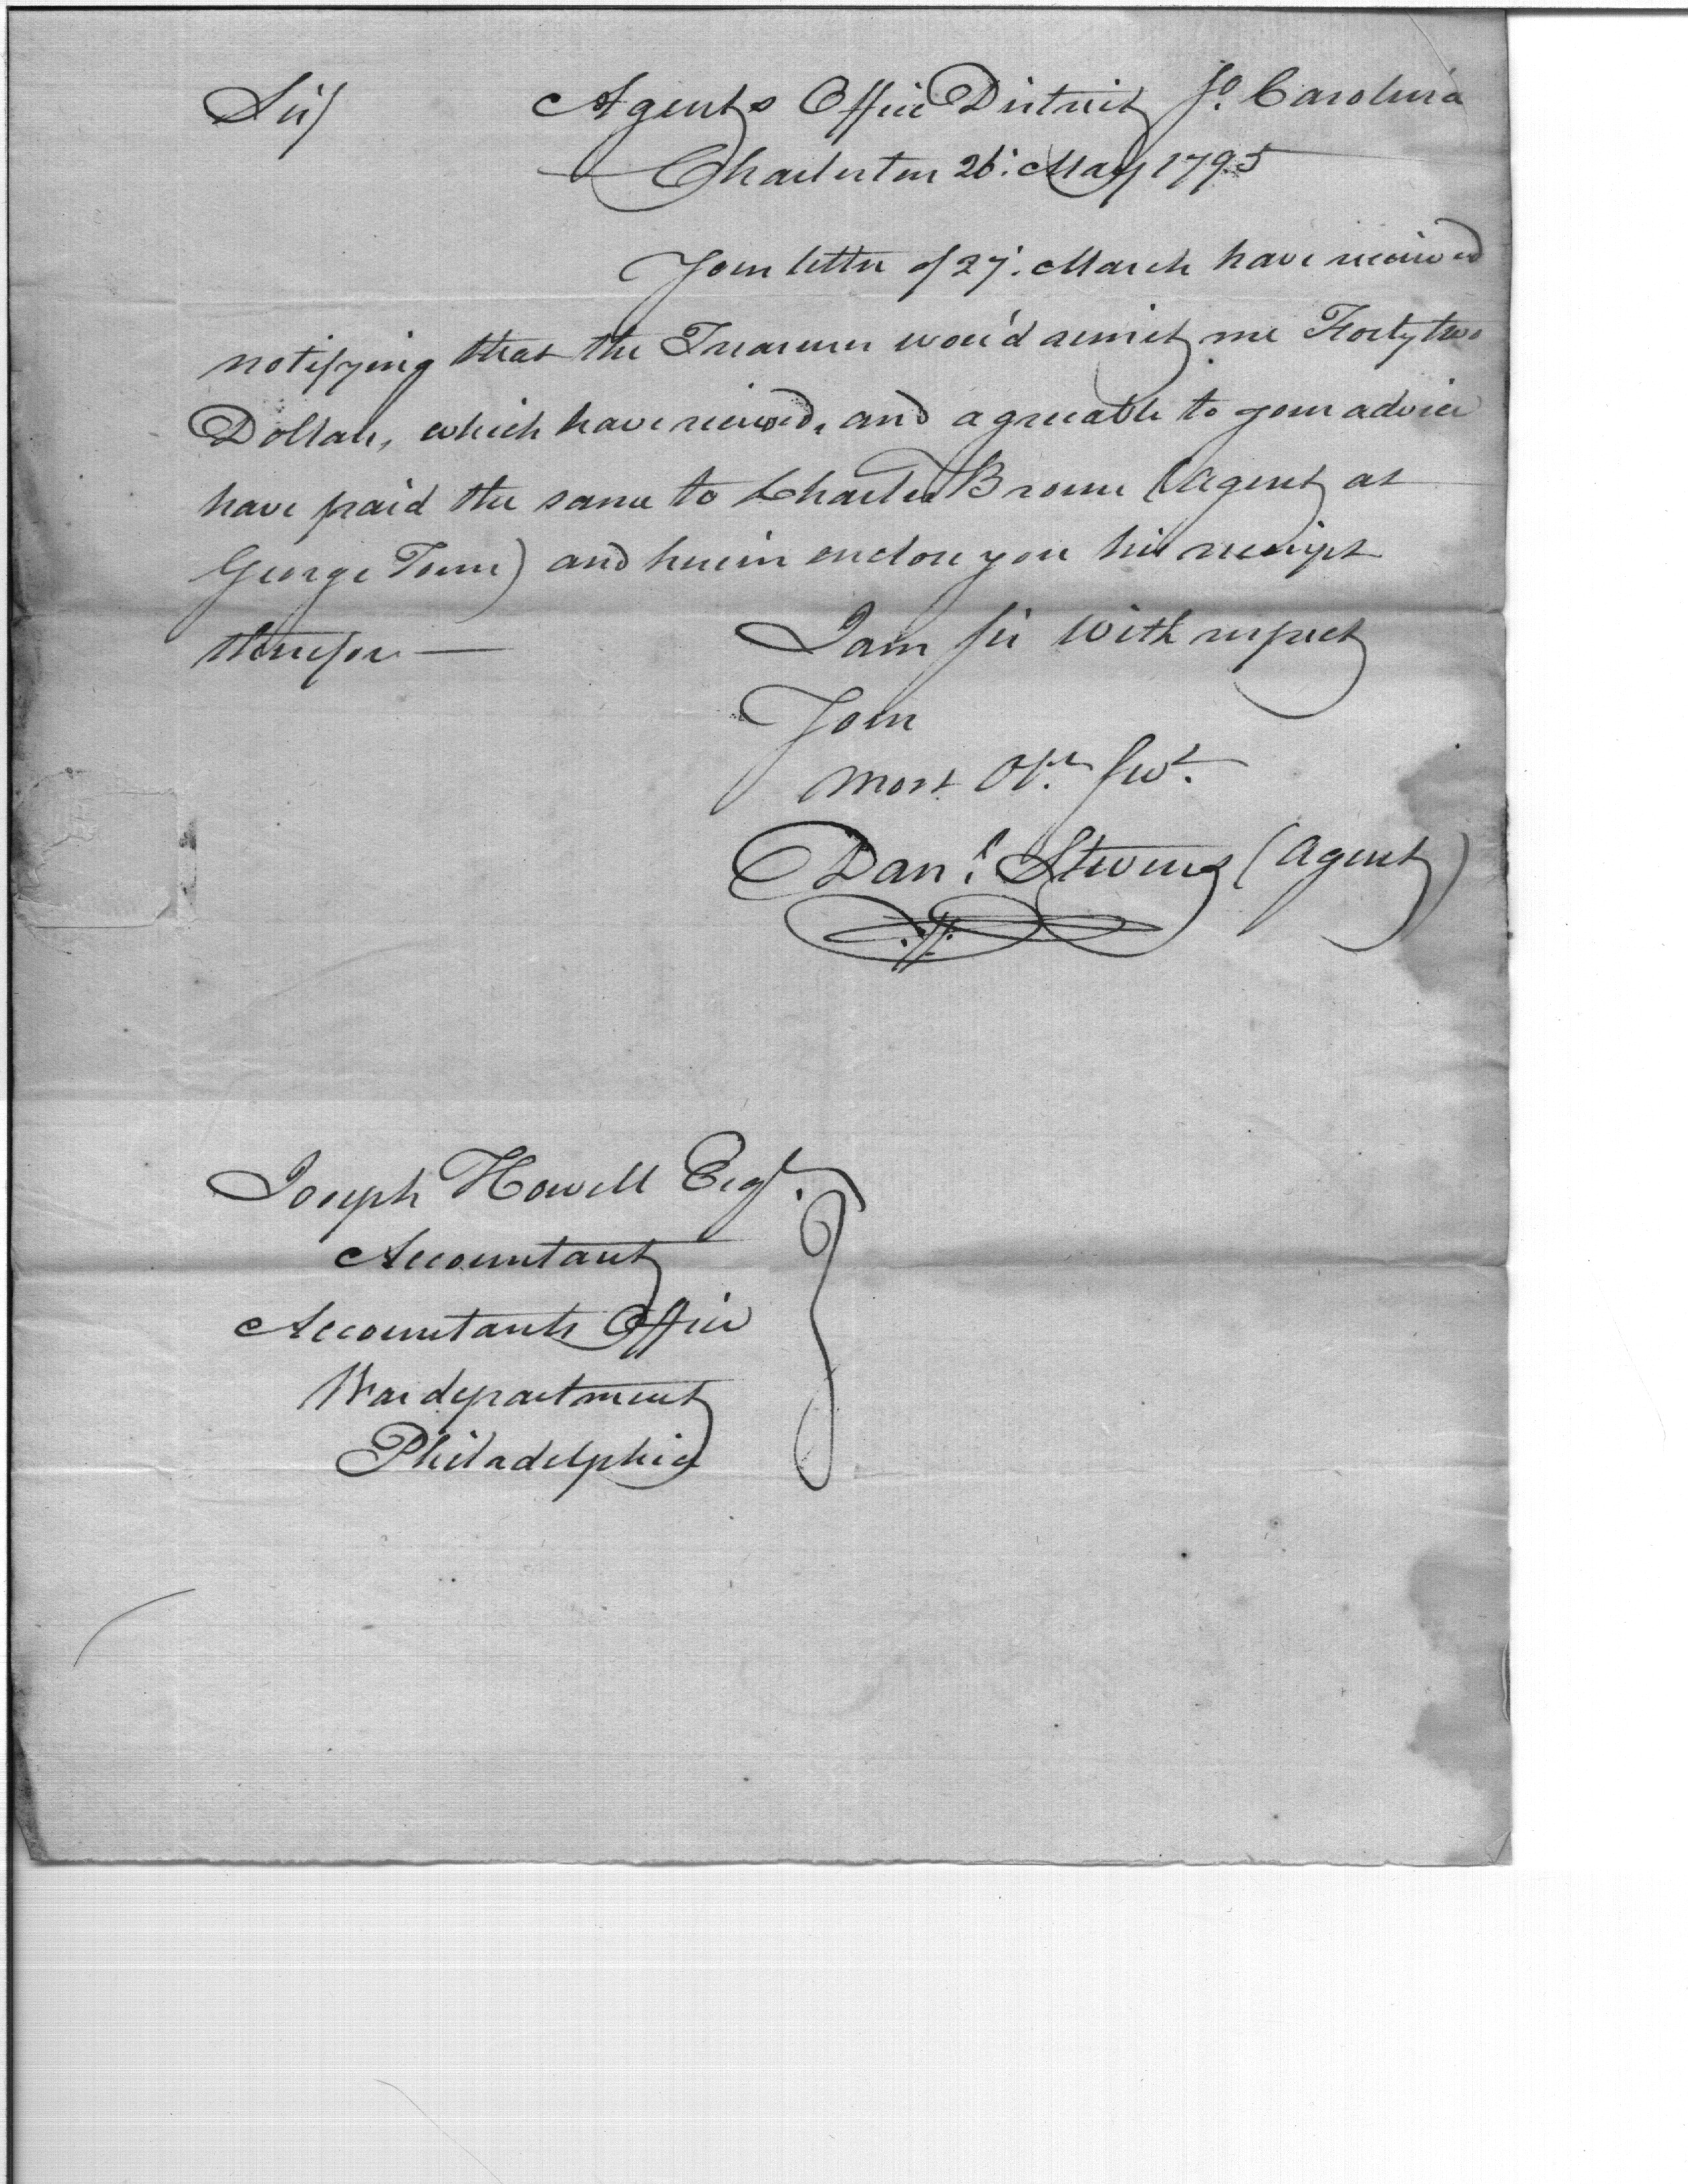 Sir/ Agents Office District So. Carolina
Charleston 26: May 1795
Your letter of 27: March have received
notifying that the Treasurer wou'd remit me Forty two
Dollars, which have received, and agreeable to your advice
have paid the same to Charles Brown (Agent at
George Town) and herein enclose you his receipt
therefor —
I am Sir With respect
Your
most Obt. Sert.
Danl. Stevens (Agent)
Joseph Howell Esqr.
Accountant
Accountants Office
War department
Philadelphia